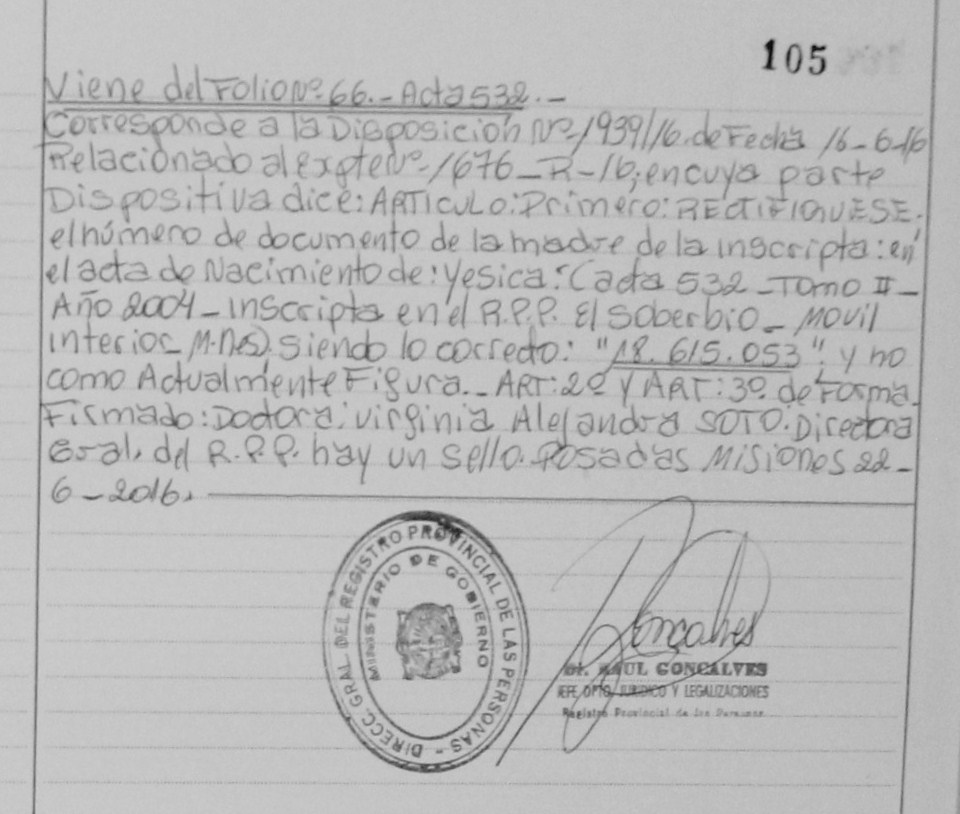 105
Viene del Folio Nº 66.- Acta 532.-
Corresponde a la Disposición Nº 1939/16. de Fecha 16-6-16
Relacionado al expte Nº 1676-R-16; en cuya parte
Dispositiva dice: ARTICULO: Primero: RECTIFIQUESE.
el número de documento de la madre de la inscripta: en
el acta de Nacimiento de: Yesica: (acta 532 - Tomo II -
Año 2004 - inscripta en el R.P.P. El Soberbio - MOVIL
interior - M.nes). siendo lo correcto: "18.615.053", y no
como Actualmente Figura.- ART: 2º Y ART: 3º de Forma.
Firmado: Doctora: Virginia Alejandra SOTO. Directora
Gral. del R.P.P. hay un sello. Posadas Misiones 22-
6-2016.
DIRECC. GRAL DEL REGISTRO PROVINCIAL DE LAS PERSONAS -
MINISTERIO DE GOBIERNO
Goncalves
Dr. RAUL GONCALVES
JEFE DPTO. JURIDICO Y LEGALIZACIONES
Registro Provincial de las Personas